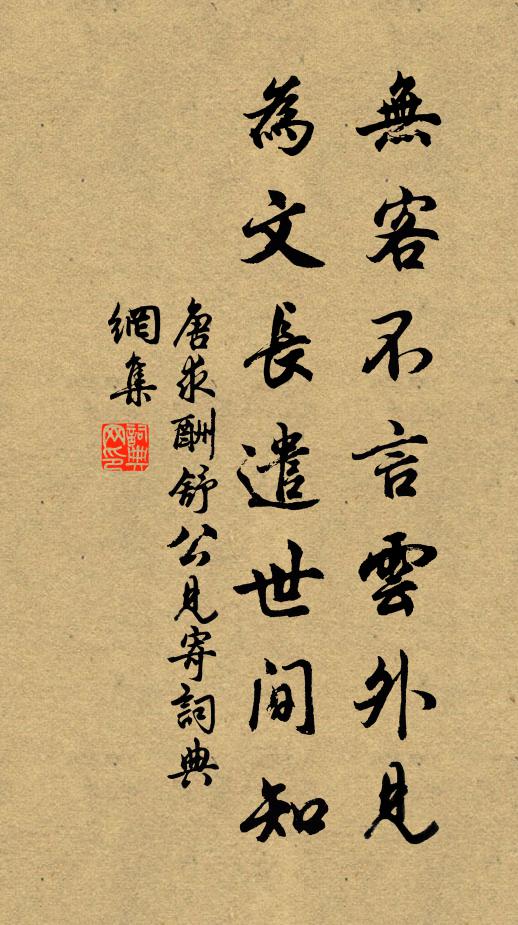 無客不言雲外見
為文長遣世間知
唐求酬舒公見寄詞典
網集
詞典网印